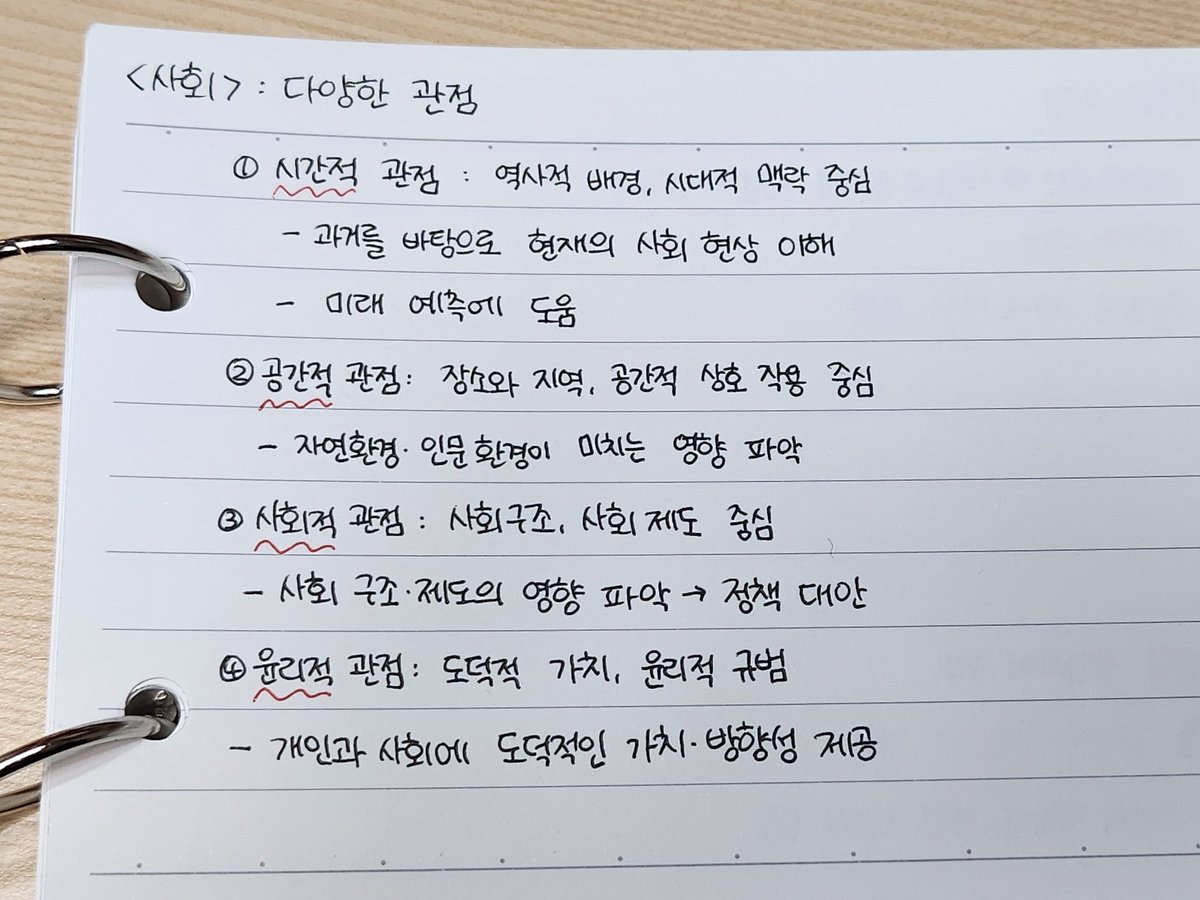 <사회> : 다양한 관점
① 시간적 관점 : 역사적 배경, 시대적 맥락 중심
- 과거를 바탕으로 현재의 사회 현상 이해
- 미래 예측에 도움
② 공간적 관점 : 장소와 지역, 공간적 상호 작용 중심
- 자연환경·인문환경이 미치는 영향 파악
③ 사회적 관점 : 사회구조, 사회 제도 중심
- 사회 구조·제도의 영향 파악 → 정책 대안
④ 윤리적 관점 : 도덕적 가치, 윤리적 규범
- 개인과 사회에 도덕적인 가치·방향성 제공